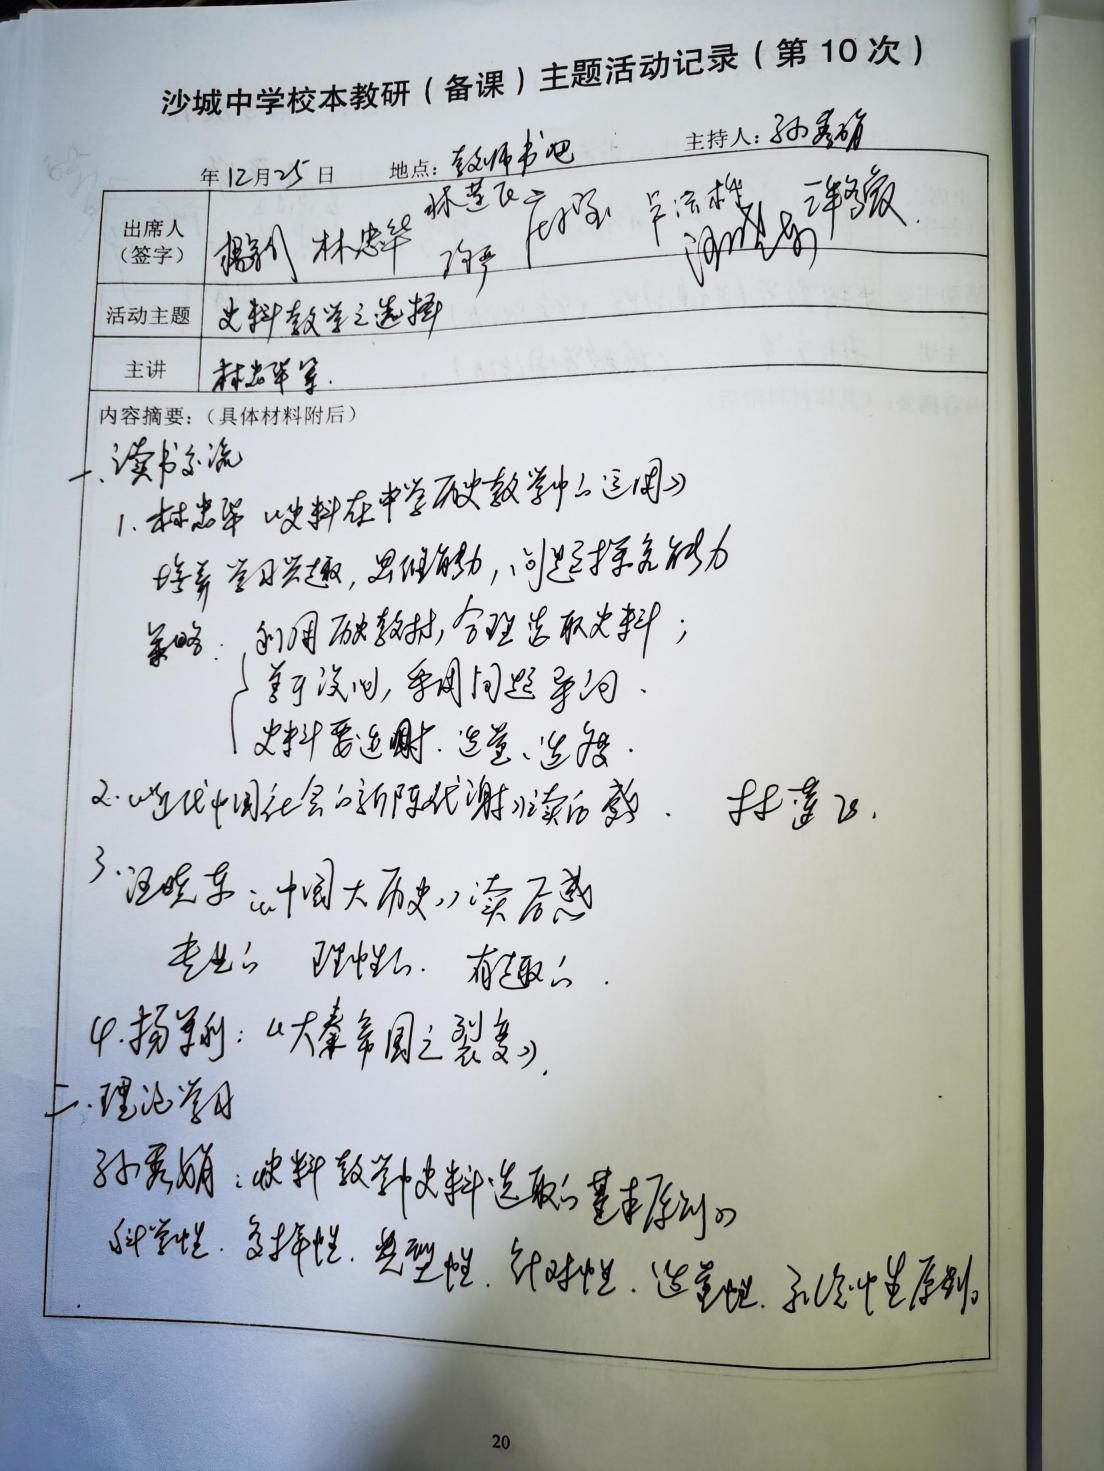 沙城中学校本教研（备课）主题活动记录（第 10 次）
年12月25日 地点：教师书吧 主持人：孙秀娟
出席人
（签字）
林忠华
活动主题 史料教学之选择
主讲 林忠华等.
内容摘要：（具体材料附后）
一、读书交流
1. 林忠华《史料在中学历史教学中的运用》
培养学习兴趣，思维能力，问题探究能力
策略：利用历史教材，合理选取史料；
善于设问，采用问题导向.
史料要适时、适量、适度.
2.《近代中国社会的新陈代谢》读后感.
3. 汪晓东：《中国大历史》读后感
专业的 理性的. 有趣的.
4. 杨军利：《大秦帝国之裂变》.
二.理论学习
孙秀娟：《史料教学中史料选取的基本原则》
科学性. 多样性. 典型性. 针对性. 适量性. 原则。
20